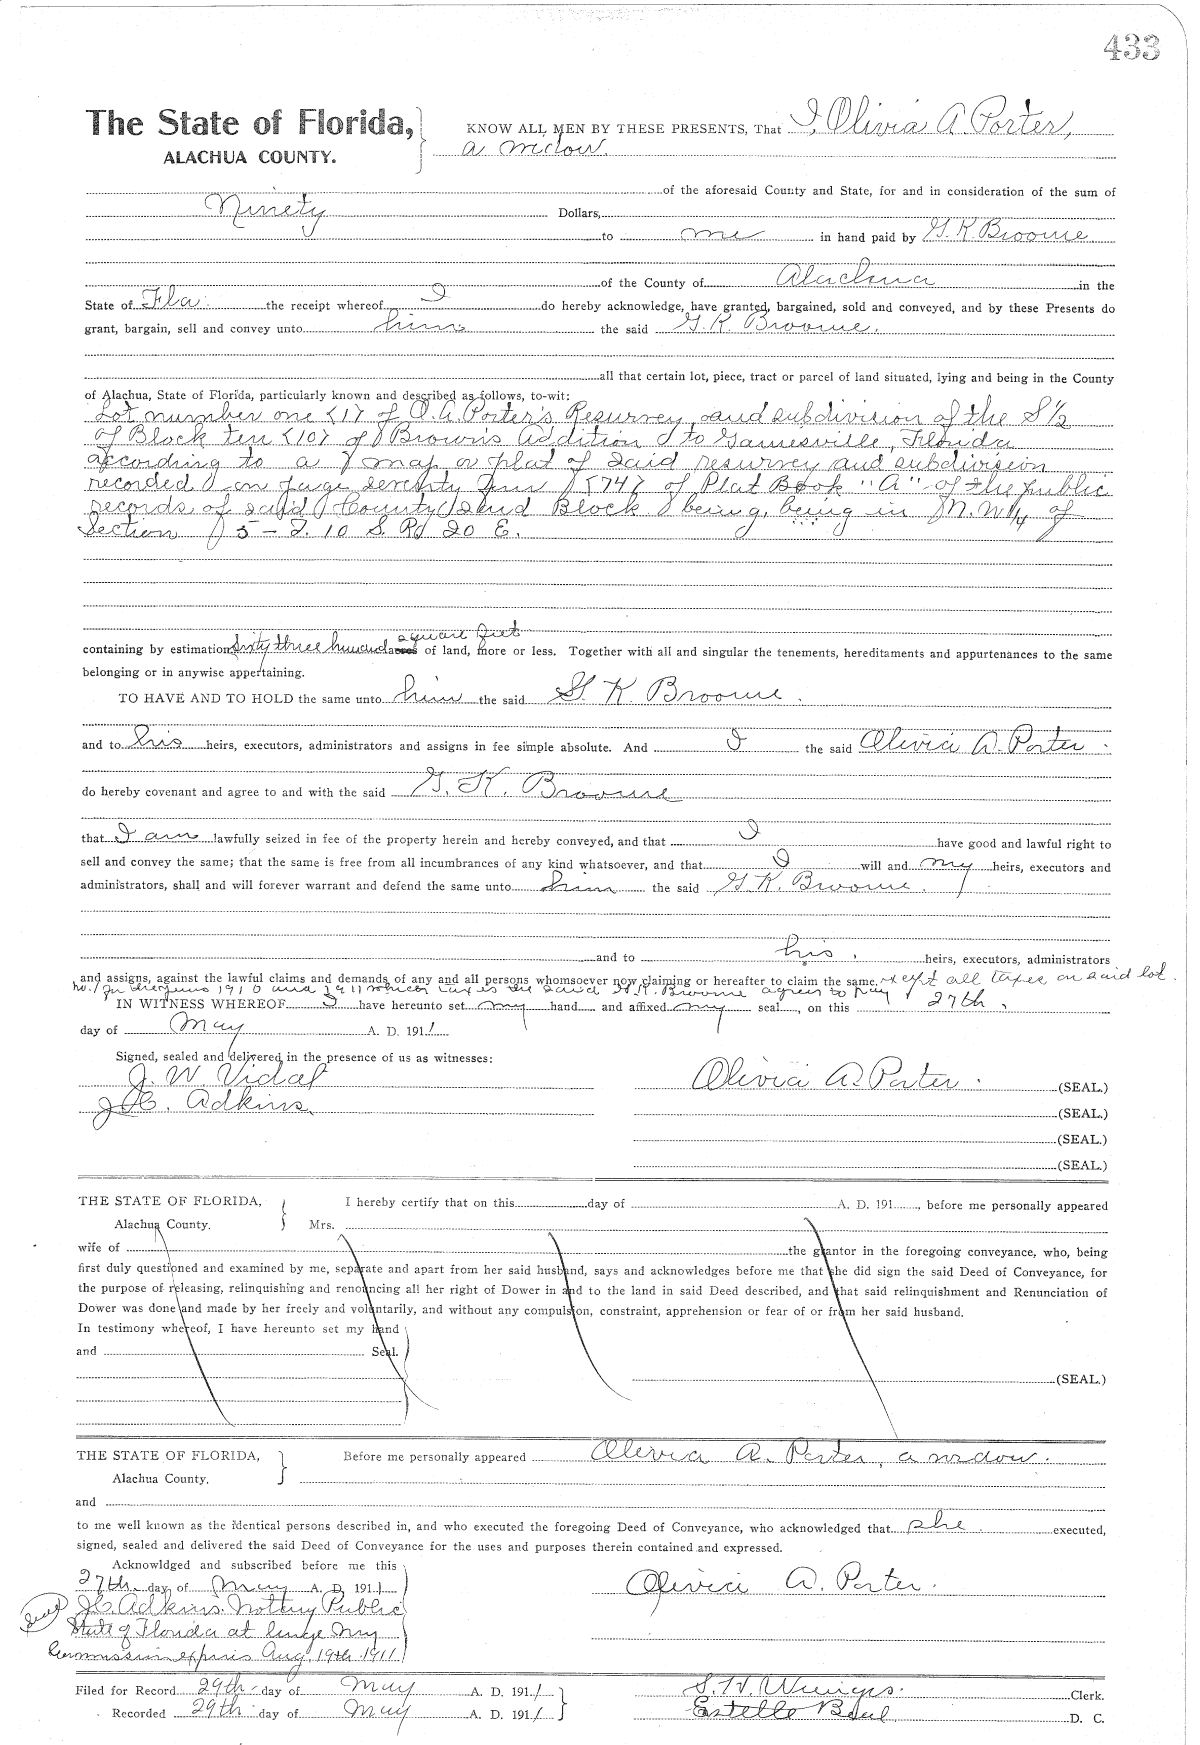 433
The State of Florida, KNOW ALL MEN BY THESE PRESENTS, That I, Olivia A. Porter,
ALACHUA COUNTY. a widow.
of the aforesaid County and State, for and in consideration of the sum of
Ninety Dollars,
to me in hand paid by G. K. Broome
of the County of Alachua in the
State of Fla. the receipt whereof I do hereby acknowledge, have granted, bargained, sold and conveyed, and by these Presents do
grant, bargain, sell and convey unto him the said G. K. Broome.
all that certain lot, piece, tract or parcel of land situated, lying and being in the County
of Alachua, State of Florida, particularly known and described as follows, to-wit:
Lot number one <1> of O. A. Porter's Resurvey and subdivision of the S 1/2
of Block ten <10> of Brown's Addition to Gainesville, Florida
according to a map or plat of said resurvey and subdivision
recorded on page seventy four <74> of Plat Book "A" of the public
records of said County said Block being, being in N.W 1/4 of
Section 5 - T. 10 S. R. 20 E.
square feet
containing by estimation sixty three hundred acres of land, more or less. Together with all and singular the tenements, hereditaments and appurtenances to the same
belonging or in anywise appertaining.
TO HAVE AND TO HOLD the same unto him the said G. K Broome.
and to his heirs, executors, administrators and assigns in fee simple absolute. And I the said Olivia A. Porter.
do hereby covenant and agree to and with the said G. K. Broome
that I am lawfully seized in fee of the property herein and hereby conveyed, and that I have good and lawful right to
sell and convey the same; that the same is free from all incumbrances of any kind whatsoever, and that I will and my heirs, executors and
administrators, shall and will forever warrant and defend the same unto him the said G. K. Broome.
and to his, heirs, executors, administrators
and assigns, against the lawful claims and demands of any and all persons whomsoever now claiming or hereafter to claim the same. except all taxes on said lot
no. 1 for the years 1910 and 1911 which taxes the said G. K. Broome agrees to pay
IN WITNESS WHEREOF I have hereunto set my hand and affixed my seal, on this 27th.
day of May A. D. 1911.
Signed, sealed and delivered in the presence of us as witnesses:
J. W. Vidal Olivia A. Porter. (SEAL.)
J. C. Adkins. (SEAL.)
(SEAL.)
(SEAL.)
THE STATE OF FLORIDA, I hereby certify that on this day of A. D. 191 , before me personally appeared
Alachua County. Mrs.
wife of the grantor in the foregoing conveyance, who, being
first duly questioned and examined by me, separate and apart from her said husband, says and acknowledges before me that she did sign the said Deed of Conveyance, for
the purpose of releasing, relinquishing and renouncing all her right of Dower in and to the land in said Deed described, and that said relinquishment and Renunciation of
Dower was done and made by her freely and voluntarily, and without any compulsion, constraint, apprehension or fear of or from her said husband.
In testimony whereof, I have hereunto set my hand
and Seal.
(SEAL.)
THE STATE OF FLORIDA, Before me personally appeared Olivia A. Porter, a widow.
Alachua County.
and
to me well known as the identical persons described in, and who executed the foregoing Deed of Conveyance, who acknowledged that she executed,
signed, sealed and delivered the said Deed of Conveyance for the uses and purposes therein contained and expressed.
Acknowldged and subscribed before me this
27th. day of May A. D. 1911 Olivia A. Porter.
J. C. Adkins. Notary Public
State of Florida at large My
Commission expires Aug. 19th 1911
(Seal)
Filed for Record 29th day of May A. D. 1911 S. H. Wienges. Clerk.
Recorded 29th day of May A. D. 1911 Estelle D. C.